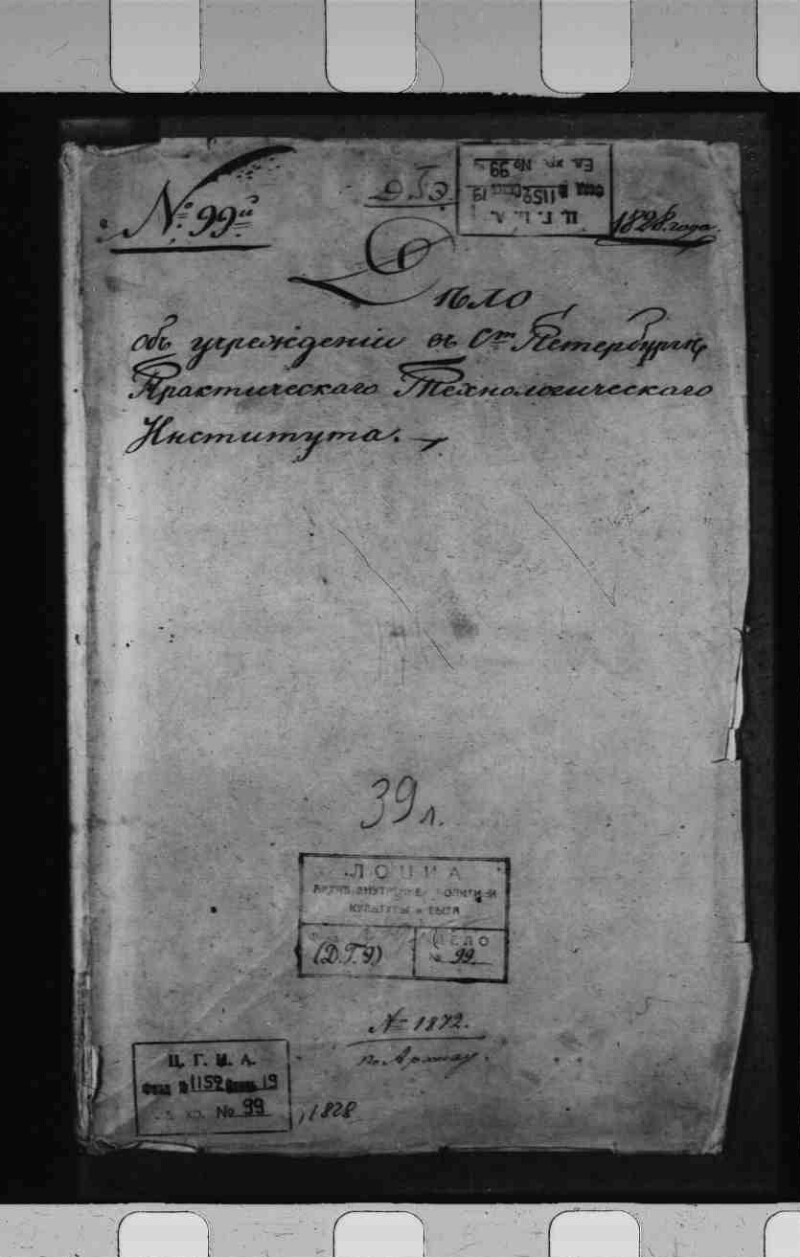 № 99й
ДГЭ
Ц. Г. И. А.
Фонд № 1152 Опись 19
Ед. хр. № 99
1828. года.
Дѣло
объ учрежденіи въ Ст. Петербургѣ
Практическаго Технологическаго
Института.
39 л.
ЛОЦИА
АРХИВ ВНУТРЕННЕЙ ПОЛИТИКИ
КУЛЬТУРЫ и БЫТА
(Д.Г.Э)
ДЕЛО
№ 99
№ 1872.
по Архиву.
Ц. Г. И. А.
Фонд № 1152 Опись 19
Ед. хр. № 99
1828